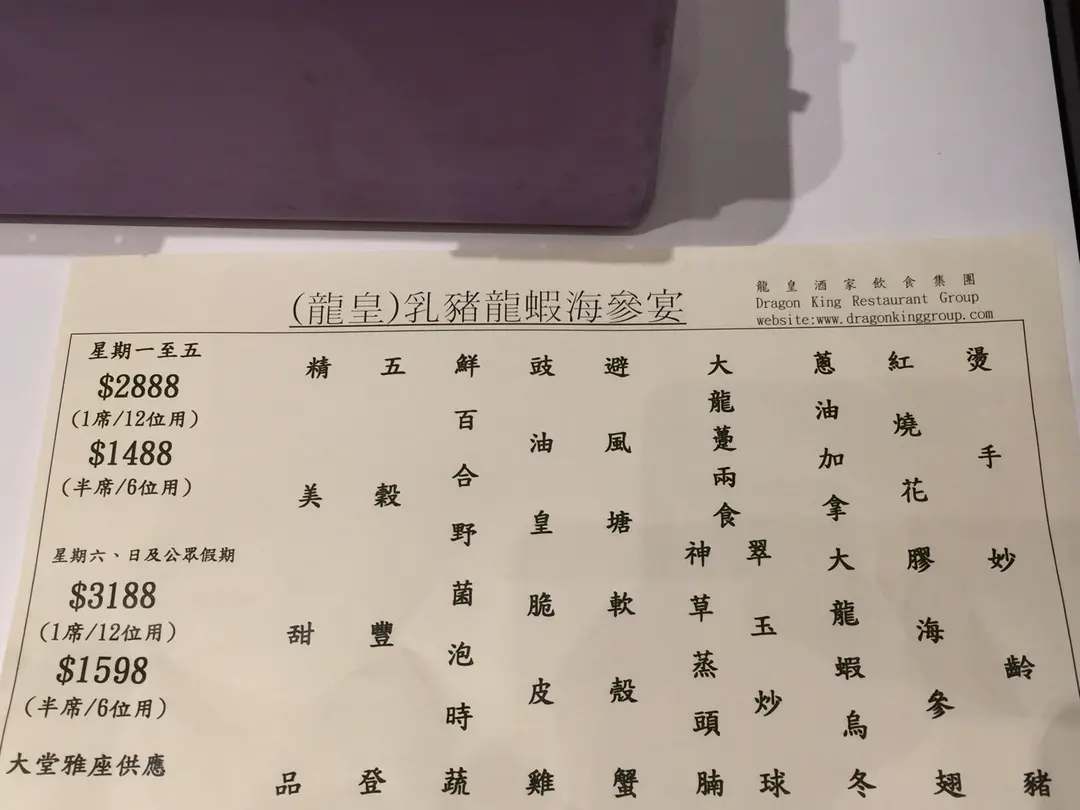 (龍皇)乳豬龍蝦海參宴
龍皇酒家飲食集團
Dragon King Restaurant Group
website:www.dragonkinggroup.com
燙手妙齡豬
紅燒花膠海參翅
蔥油加拿大龍蝦烏冬
大龍躉兩食
翠玉炒球
神草蒸頭腩
避風塘軟殼蟹
豉油皇脆皮雞
鮮百合野菌泡時蔬
五穀豐登
精美甜品
星期一至五
$2888
(1席/12位用)
$1488
(半席/6位用)
星期六、日及公眾假期
$3188
(1席/12位用)
$1598
(半席/6位用)
大堂雅座供應